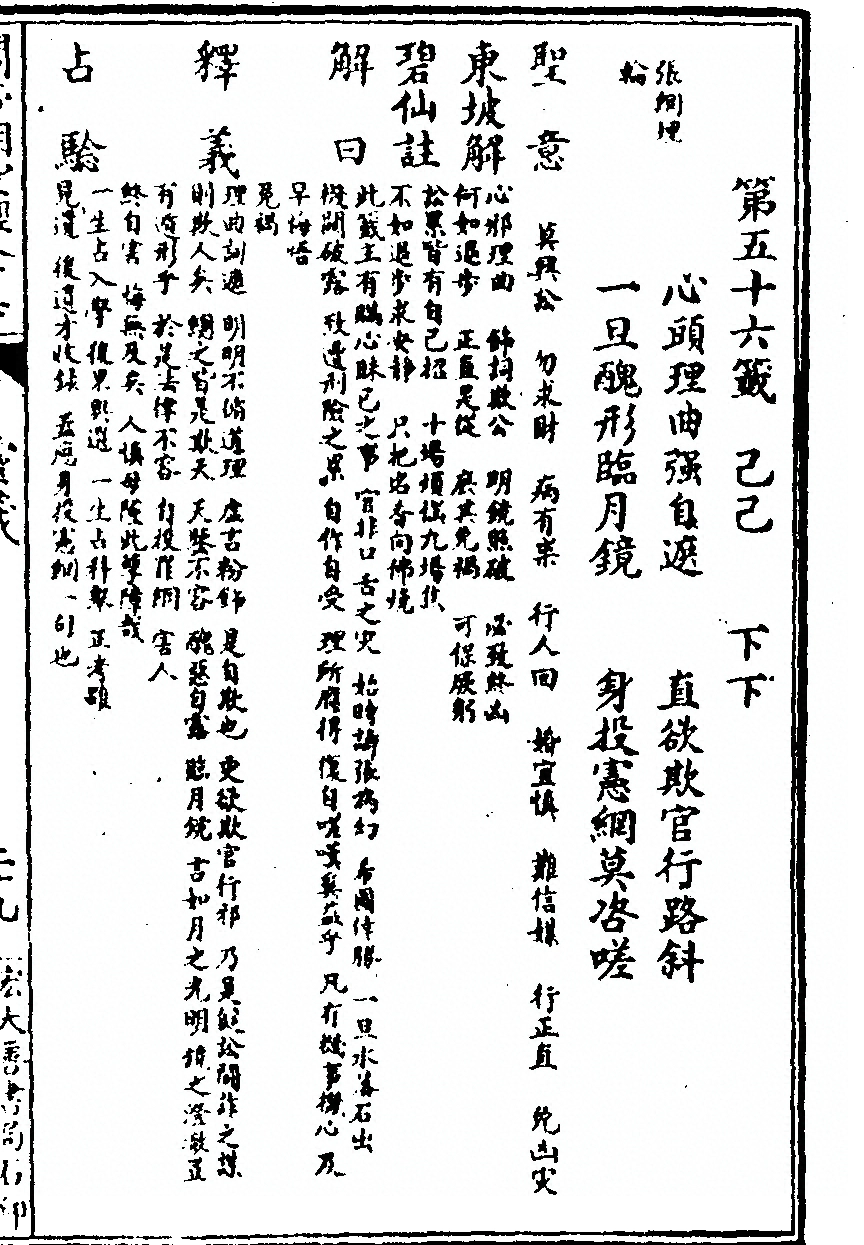 第五十六籤 己己 下下
張綱埋
輪
心頭理曲强自遮 直欲欺官行路斜
一旦醜形臨月鏡 身投憲網莫咨嗟
聖意 莫興訟 勿求財 病有祟 行人回 婚宜慎 難信媒 行正直 免凶災
東坡解 心邪理曲 飾詞欺公 明鏡照破 必致終凶
何如退步 正直是從 庶其免禍 可保厥躬
碧仙註 訟累皆有自己招 十場煩惱九場焦
不如退步求安静 只把名香向佛燒
解曰 此籤主有瞞心昧己之事 官非口舌之災 始時譸張為幻 希圖倖勝 一旦水落石出
機關破露 致遭刑險之累 自作自受 理所應得 復自嗟嘆奚益乎 凡有機事機心 及
早悔悟
免禍
釋義 理曲訓遮 明明不循道理 虛言粉飾 是自欺也 更欲欺官行邪 乃是健訟鬬詐之謀
則欺人矣 總之皆是欺天 天鑒不容 醜惡自露 臨月鏡 言如月之光明 鏡之澄澈 豈
有遁形乎 於是法律不容 自投羅網 害人
終自害 悔無及矣 人慎毋陷此孽障哉
占驗 一生占入學 後果與選 一生占科舉 正考雖
見遺 後遺才收錄 蓋應身投憲網一句也
二九 宏大善書局石印